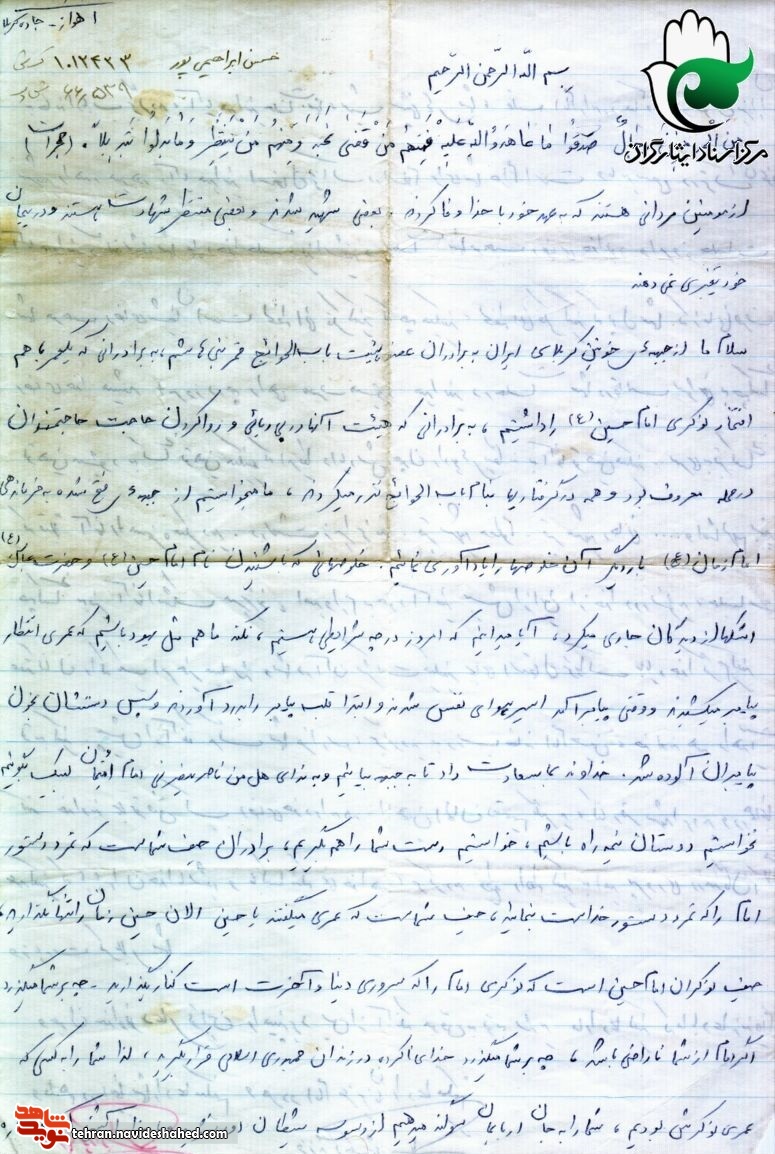 اهواز - جاده کربلا
حسن ابراهیمی پور ۱۰۱۲۴۲۳
بسم الله الرحمن الرحیم
مرکز اسناد ایثارگران
صدقوا ما عاهدوا الله علیه فمنهم من قضی نحبه و منهم من ینتظر و ما بدلوا تبدیلاً.
از مومنین مردانی هستند که به عهد خود با خدا وفا کردند. بعضی شهید شدند و بعضی منتظر شهادت هستند و در پیمان
خود تغییری نمی دهند
سلام ما از جبهه ی خونین کربلای ایران به برادران عضو هیئت باب الحوائج قمر بنی هاشم، به برادرانی که یکعمر با هم
افتخار نوکری امام حسین (ع) را داشتیم، به برادرانی که هیئت آنها در بی ریائی و روا کردن حاجت حاجتمندان
در محله معروف بود و همه در گرفتاریها بنام باب الحوائج نذر میکردند، ما میخواستیم از جبهه ی فتح شده به فرماندهی
امام زمان (عج) بار دیگر آن خلوصها را یادآوری نمائیم. خلوصهائی که با شنیدن نام امام حسین (ع) و حضرت عباس (ع)
اشکها از دیدگان جاری میکرد، آیا میدانیم که امروز در چه شرایطی هستیم، نکند ما هم مثل یهود باشیم که عمری انتظار
پیامبر میکشیدند و وقتی پیامبر آمد اسیر هوای نفس شدند و ابتدا قلب پیامبر را بدرد آوردند و سپس دستشان بخون
پیامبران آلوده شد. خداوند بما سعادت داد تا به جبهه بیائیم و به ندای هل من ناصر ینصرنی امام امتمان لبیک بگوئیم
نخواستیم دوستان نیمه راه باشیم، خواستیم دست شما را هم بگیریم، برادران حیف شماست که تمرد دستور
امام را که تمرد دستور خداست بنمائید، حیف شماست که عمری میگفتند یا حسین الان حسین زمان را تنها بگذارید،
حیف نوکران امام حسین است که نوکری امام را که سروری دنیا و آخرت است کنار بگذارید. چه بر شما میگذرد
اگر امام از شما ناراضی باشد، چه بر شما میگذرد خدای نکرده در زندان جمهوری اسلامی قرار بگیرید، لذا شما را به کسی که
عمری نوکرش بودیم، شما را به جان اربابمان سوگند میدهیم از وسوسه شیطان
نوید شاهد
tehran.navideshahed.com